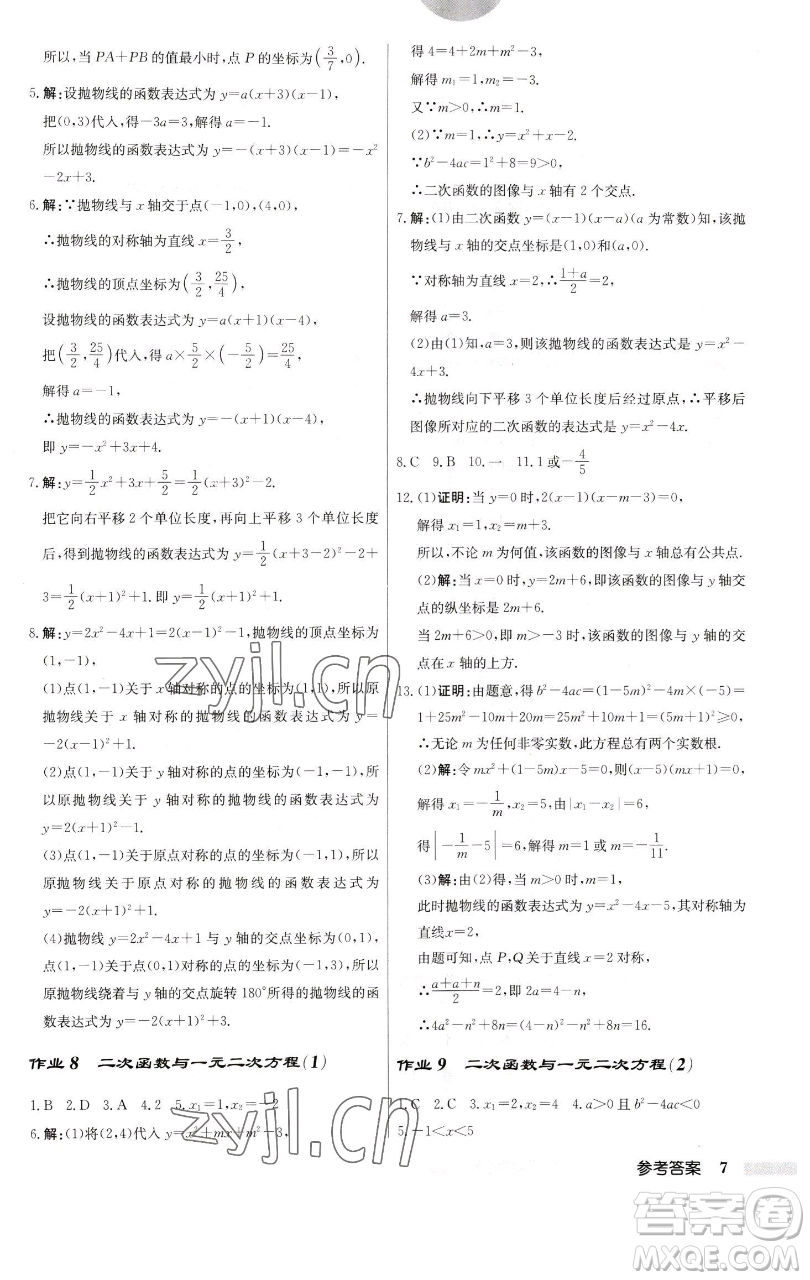 所以,当 PA+PB 的值最小时,点 P 的坐标为(3/7,0).
5.解:设抛物线的函数表达式为 y=a(x+3)(x-1),
把(0,3)代入,得-3a=3,解得 a=-1.
所以抛物线的函数表达式为 y=-(x+3)(x-1)=-x²
-2x+3.
6.解:∵抛物线与 x 轴交于点(-1,0),(4,0),
∴抛物线的对称轴为直线 x=3/2,
∴抛物线的顶点坐标为(3/2,25/4),
设抛物线的函数表达式为 y=a(x+1)(x-4),
把(3/2,25/4)代入,得 a×5/2×(-5/2)=25/4,
解得 a=-1,
∴抛物线的函数表达式为 y=-(x+1)(x-4),
即 y=-x²+3x+4.
7.解:y=1/2x²+3x+5/2=1/2(x+3)²-2.
把它向右平移 2 个单位长度,再向上平移 3 个单位长度
后,得到抛物线的函数表达式为 y=1/2(x+3-2)²-2+
3=1/2(x+1)²+1.即 y=1/2(x+1)²+1.
8.解:y=2x²-4x+1=2(x-1)²-1,抛物线的顶点坐标为
(1,-1),
(1)点(1,-1)关于 x 轴对称的点的坐标为(1,1),所以原
抛物线关于 x 轴对称的抛物线的函数表达式为 y=
-2(x-1)²+1.
(2)点(1,-1)关于 y 轴对称的点的坐标为(-1,-1),所
以原抛物线关于 y 轴对称的抛物线的函数表达式为
y=2(x+1)²-1.
(3)点(1,-1)关于原点对称的点的坐标为(-1,1),所以
原抛物线关于原点对称的抛物线的函数表达式为
y=-2(x+1)²+1.
(4)抛物线 y=2x²-4x+1 与 y 轴的交点坐标为(0,1),
点(1,-1)关于点(0,1)对称的点的坐标为(-1,3),所以
原抛物线绕着与 y 轴的交点旋转 180°所得的抛物线的函
数表达式为 y=-2(x+1)²+3.
作业 8 二次函数与一元二次方程(1)
1.B 2.D 3.A 4.2 5.x₁=1,x₂=-2
6.解:(1)将(2,4)代入 y=x²+mx+m²-3,
得 4=4+2m+m²-3,
解得 m₁=1,m₂=-3.
又∵m>0,∴m=1.
(2)∵m=1,∴y=x²+x-2.
∵b²-4ac=1²+8=9>0,
∴二次函数的图像与 x 轴有 2 个交点.
7.解:(1)由二次函数 y=(x-1)(x-a)(a 为常数)知,该抛
物线与 x 轴的交点坐标是(1,0)和(a,0).
∵对称轴为直线 x=2,∴(1+a)/2=2,
解得 a=3.
(2)由(1)知,a=3,则该抛物线的函数表达式是 y=x²-
4x+3.
∴抛物线向下平移 3 个单位长度后经过原点,∴平移后
图像所对应的二次函数的表达式是 y=x²-4x.
8.C 9.B 10.一 11.1 或-4/5
12.(1)证明:当 y=0 时,2(x-1)(x-m-3)=0,
解得 x₁=1,x₂=m+3.
所以,不论 m 为何值,该函数的图像与 x 轴总有公共点.
(2)解:当 x=0 时,y=2m+6,即该函数的图像与 y 轴交
点的纵坐标是 2m+6.
当 2m+6>0,即 m>-3 时,该函数的图像与 y 轴的交
点在 x 轴的上方.
13.(1)证明:由题意,得 b²-4ac=(1-5m)²-4m×(-5)=
1+25m²-10m+20m=25m²+10m+1=(5m+1)²≥0,
∴无论 m 为任何非零实数,此方程总有两个实数根.
(2)解:令 mx²+(1-5m)x-5=0,则(x-5)(mx+1)=0,
解得 x₁=-1/m,x₂=5,由|x₁-x₂|=6,
得|-1/m-5|=6,解得 m=1 或 m=-1/11.
(3)解:由(2)得,当 m>0 时,m=1,
此时抛物线的函数表达式为 y=x²-4x-5,其对称轴为
直线x=2,
由题可知,点 P,Q 关于直线 x=2 对称,
∴(a+a+n)/2=2,即 2a=4-n,
∴4a²-n²+8n=(4-n)²-n²+8n=16.
作业 9 二次函数与一元二次方程(2)
1.C 2.C 3.x₁=2,x₂=4 4.a>0 且 b²-4ac<0
5.-1<x<5
参考答案 7
zyjl.cn
答案圈
MXQE.COM